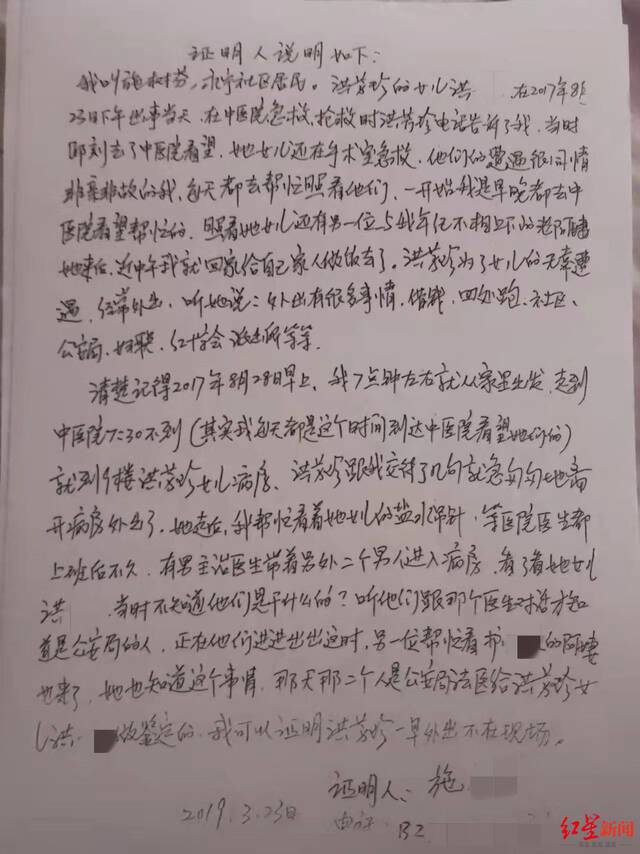 证明人说明如下:
我叫施 社区居民。洪芳珍的女儿洪 在2017年8月
23日下午出事当天,在中医院急救,抢救时洪芳珍电话告诉了我,当时
即刻去了中医院看望,她女儿还在手术室急救,他们的遭遇很同情
非亲非故的我,每天都去帮忙照看他们,一开始我是早晚都去中
医院看望帮忙的,照看她女儿还有另一位与我年纪不相上下的老阿婆
她来后,近中午我就回家给自己家人做饭去了。洪芳珍为了女儿的无辜遭
遇,经常外出,听她说:外出有很多事情,借钱,四处跑、社区、
公安局、妇联、红十字会派出所等等。
清楚记得2017年8月28日早上,我7点钟左右就从家里出发,走到
中医院7:30不到(其实我每天都是这个时间到达中医院看望她们的)
就到 楼洪芳珍女儿病房、洪芳珍跟我交待了几句就急匆匆地离
开病房外出了。她走后,我帮忙看着她女儿的盐水吊针,等医院医生都
上班后不久,有男主治医生带着另外二个男人进入病房,看了看她女儿
洪 当时不知道他们是干什么的?听他们跟那个医生对话才知
道是公安局的人,正在他们进进出出这时,另一位帮忙看护 的阿婆
也来了,她也知道这个事情,那天那二个人是公安局法医给洪芳珍女
儿洪 做鉴定的、我可以证明洪芳珍一早外出不在现场。
证明人:施
2019.3.23日
电话: 82
红星新闻